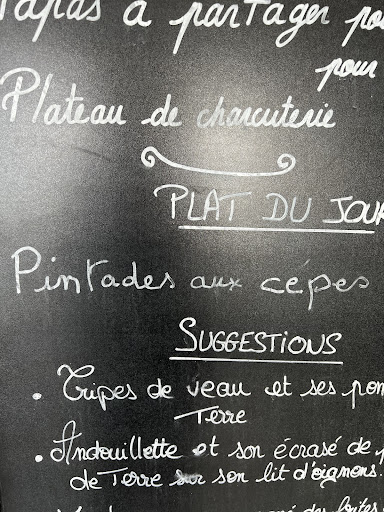 Tapas à partager po
pour
Plateau de charcuterie
PLAT DU JOUR
Pintades aux cèpes
SUGGESTIONS
• Tripes de veau et ses pom
Terre
• Andouillette et son écrasé de p
de Terre sur son lit d'oignons.